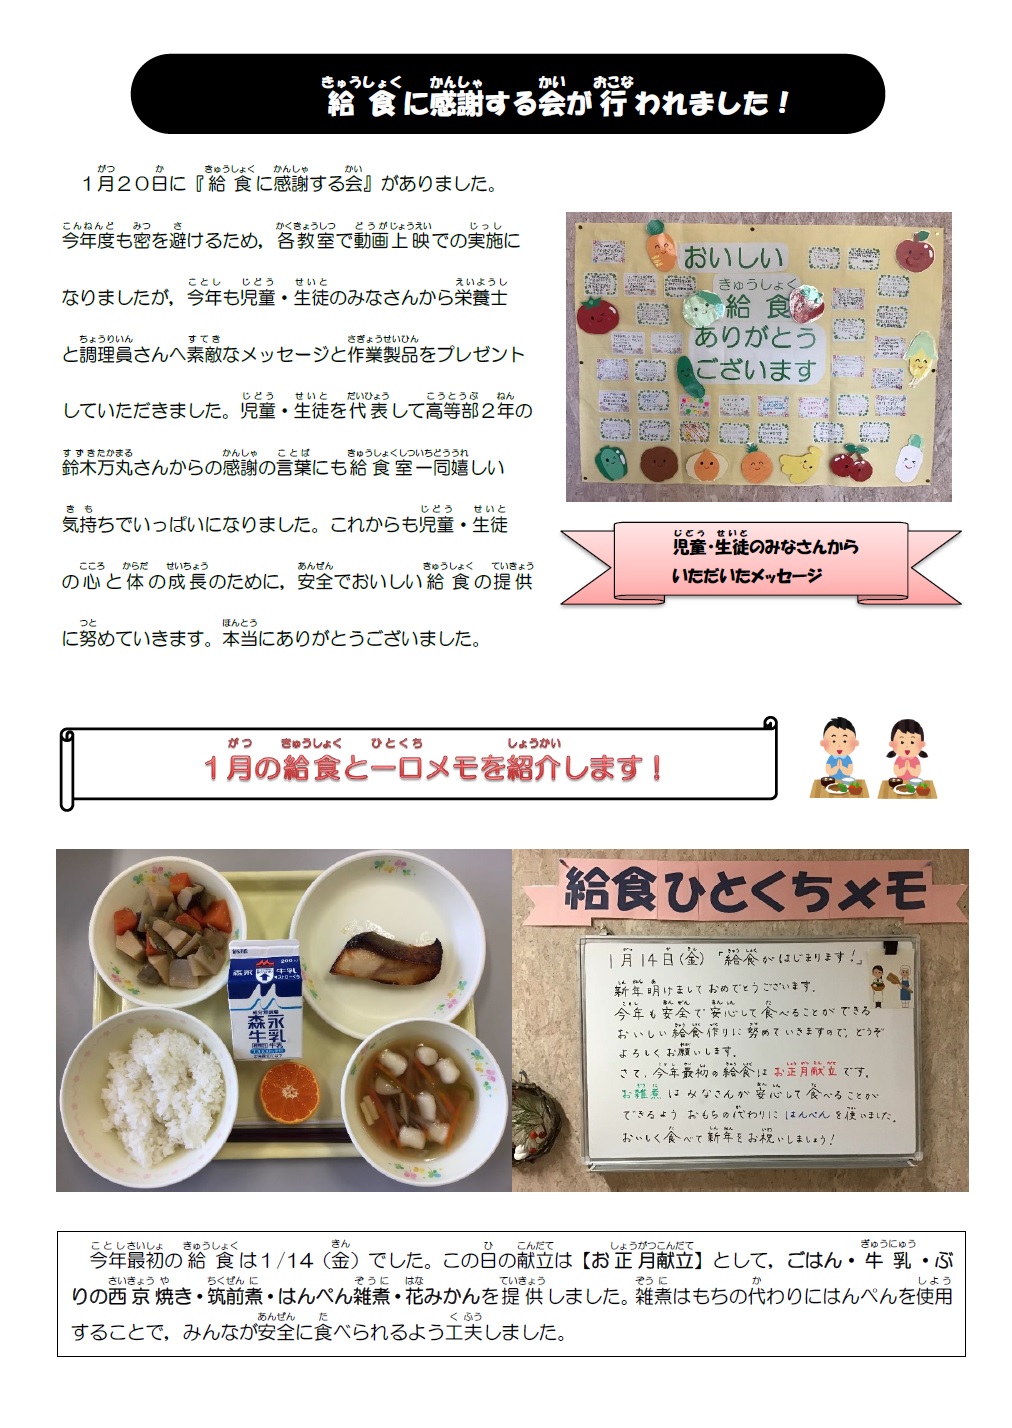 給食に感謝する会が行われました！
1月20日に『給食に感謝する会』がありました。
今年度も密を避けるため，各教室で動画上映での実施に
なりましたが，今年も児童・生徒のみなさんから栄養士
と調理員さんへ素敵なメッセージと作業製品をプレゼント
していただきました。児童・生徒を代表して高等部２年の
鈴木万丸さんからの感謝の言葉にも給食室一同嬉しい
気持ちでいっぱいになりました。これからも児童・生徒
の心と体の成長のために，安全でおいしい給食の提供
に努めていきます。本当にありがとうございました。
おいしい
給食
ありがとう
ございます
児童・生徒のみなさんから
いただいたメッセージ
１月の給食と一口メモを紹介します！
森永
牛乳
給食ひとくちメモ
1月14日(金)「給食がはじまります!」
新年明けましておめでとうございます。
今年も安全で安心して食べることができる
おいしい給食作りに努めていきますので、どうぞ
よろしくお願いします。
さて、今年最初の給食はお正月献立です。
お雑煮はみなさんが安心して食べることが
できるようおもちの代わりにはんぺんを使いました。
おいしく食べて新年をお祝いしましょう!
今年最初の給食は１/14（金）でした。この日の献立は【お正月献立】として，ごはん・牛乳・ぶ
りの西京焼き・筑前煮・はんぺん雑煮・花みかんを提供しました。雑煮はもちの代わりにはんぺんを使用
することで，みんなが安全に食べられるよう工夫しました。